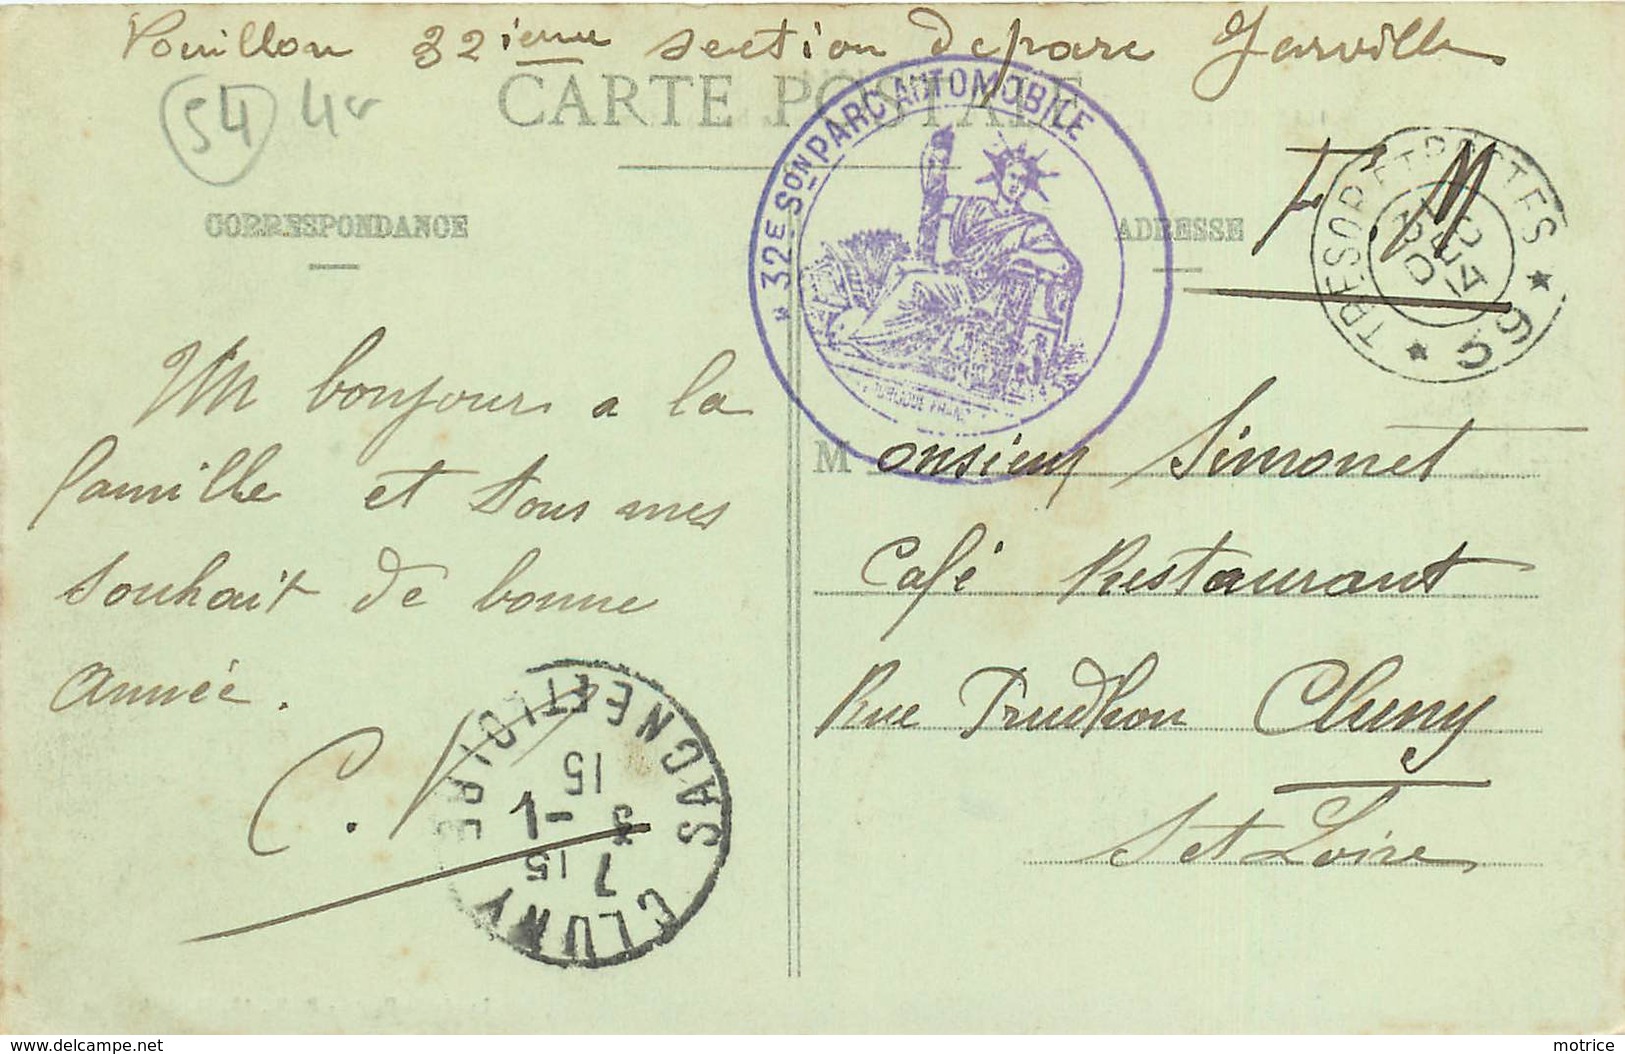 Pouillon 32ième section de parc Jarville
CARTE POSTALE
54 4e
F.M
32E SON PARC AUTOMOBILE
TRESOR ET POSTES
DEC
14
CORRESPONDANCE
ADRESSE
Un bonjour a la
famille et tous mes
souhait de bonne
année.
C. P
SAONE ET LOIRE
15
3 -1
7 15
CLUNY
Monsieur Simonet
Café Restaurant
Rue Prudhon Cluny
S et Loire
delcampe.net
motrice